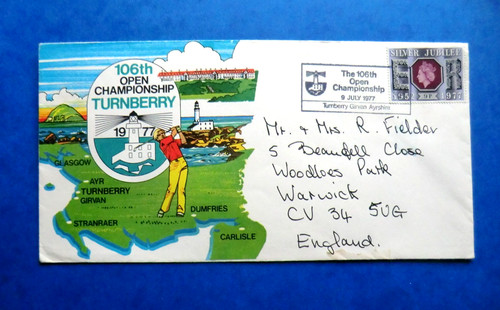 106th
OPEN
CHAMPIONSHIP
TURNBERRY
1977
GLASGOW
AYR
TURNBERRY
GIRVAN
STRANRAER
DUMFRIES
CARLISLE
The 106th
Open
Championship
9 JULY 1977
Turnberry Girvan Ayrshire
SILVER JUBILEE
1977
Mr. + Mrs. R. Fielder
5 Beaufell Close
Woodloes Park
Warwick
CV 34 5UG
England.